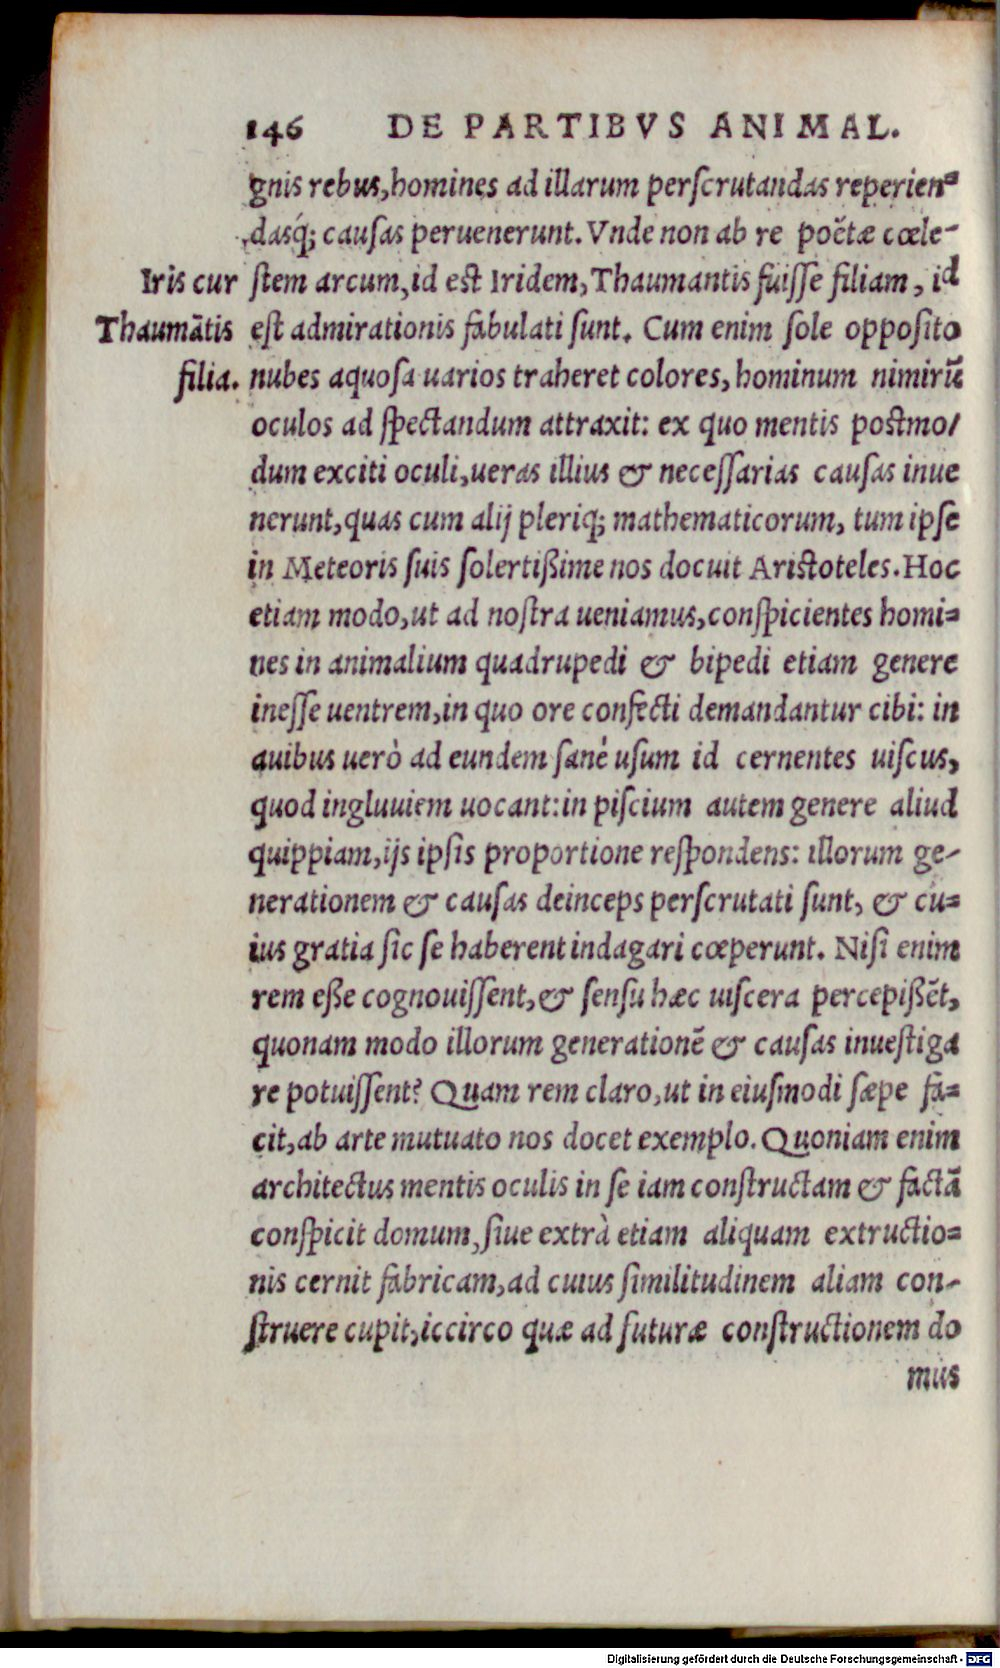 146 DE PARTIBVS ANIMAL.
gnis rebus, homines ad illarum perſcrutandas reperien=
dasq́; cauſas peruenerunt. Vnde non ab re poẽtæ cœle-
Iris cur
ſtem arcum, id eſt Iridem, Thaumantis fuiſſe filiam, id
Thaumãtis
eſt admirationis fabulati ſunt. Cum enim ſole oppoſito
filia.
nubes aquoſa uarios traheret colores, hominum nimirũ
oculos ad ſpectandum attraxit: ex quo mentis poſtmo/
dum exciti oculi, ueras illius & neceſſarias cauſas inue
nerunt, quas cum alij pleriq; mathematicorum, tum ipſe
in Meteoris ſuis ſolertißime nos docuit Ariſtoteles. Hoc
etiam modo, ut ad noſtra ueniamus, conſpicientes homi=
nes in animalium quadrupedi & bipedi etiam genere
ineſſe uentrem, in quo ore confecti demandantur cibi: in
auibus uerò ad eundem ſanè uſum id cernentes uiſcus,
quod ingluuiem uocant: in piſcium autem genere aliud
quippiam, ijs ipſis proportione reſpondens: illorum ge-
nerationem & cauſas deinceps perſcrutati ſunt, & cu=
ius gratia ſic ſe haberent indagari cœperunt. Niſi enim
rem eße cognouiſſent, & ſenſu hæc uiſcera percepißẽt,
quonam modo illorum generationẽ & cauſas inueſtiga
re potuiſſent? Quam rem claro, ut in eiuſmodi ſæpe fa=
cit, ab arte mutuato nos docet exemplo. Quoniam enim
architectus mentis oculis in ſe iam conſtructam & factã
conſpicit domum, ſiue extrà etiam aliquam extructio=
nis cernit fabricam, ad cuius ſimilitudinem aliam con-
ſtruere cupit, iccirco quæ ad futuræ conſtructionem do
mus
Digitalisierung gefördert durch die Deutsche Forschungsgemeinschaft - DFG